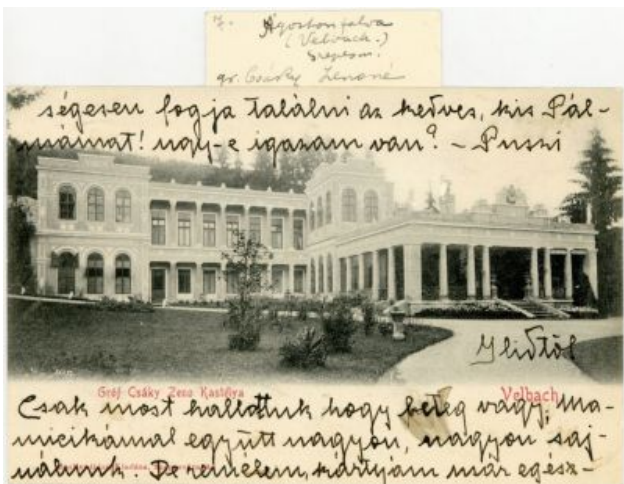 Ágostonfalva
(Velbach.)
Szepesm.
gr. Csáky Zenoné
ségesen fogja találni az kedves, kis Pál-
mámat! ugy-e igazam van? – Puszi
Ylidtől
Gróf Csáky Zeno Kastélya
Velbach
Csak most hallottuk hogy beteg vagy, Ma-
micikámmal együtt nagyon, nagyon saj-
nálunk. De remélem, kártyám már egész-